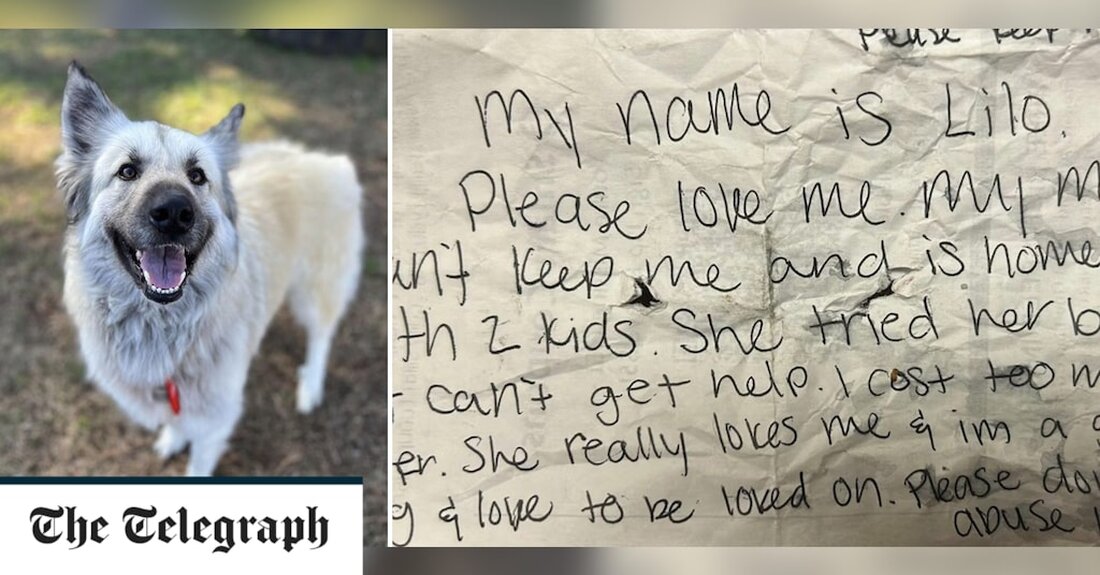 Please keep
My name is Lilo.
Please love me. My m
n't keep me and is home
th 2 kids. She tried her b
can't get help. I cost too m
er. She really loves me & im a g
g & love to be loved on. Please don
abuse
The Telegraph